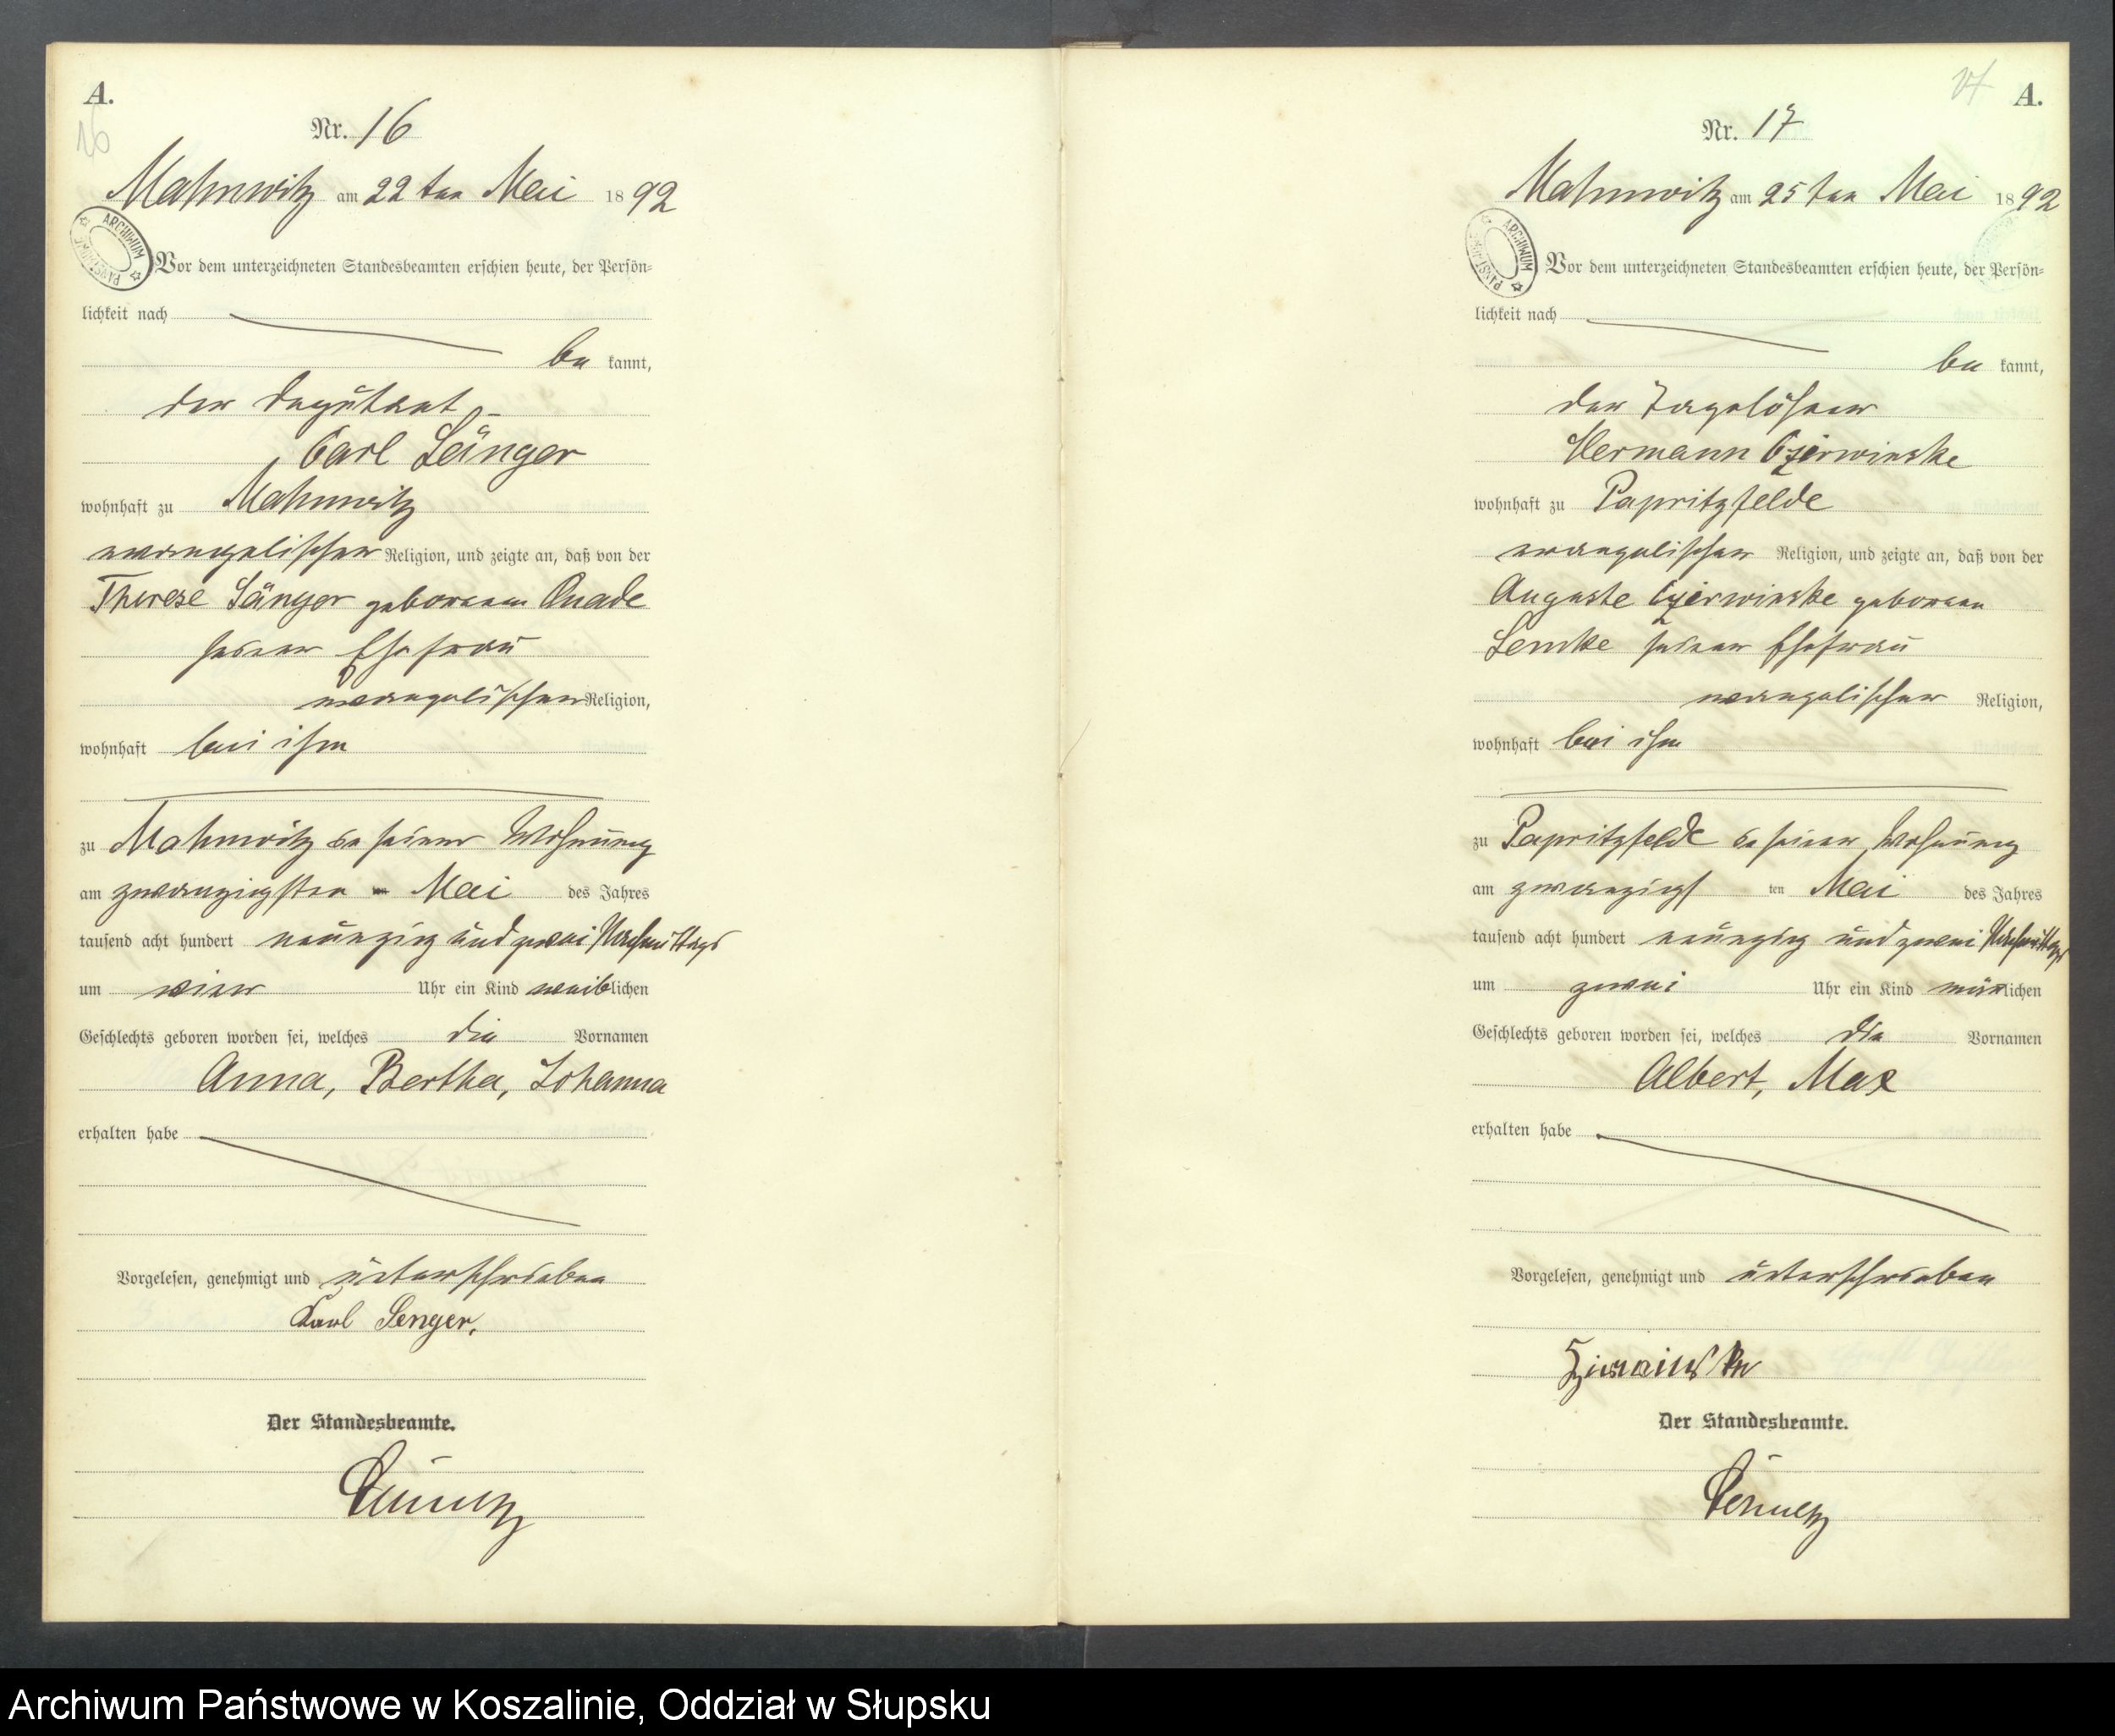 A.
16
Nr. 16
Mahnwitz am 22 ten Mai 1892
ARCHIWUM
Vor dem unterzeichneten Standesbeamten erschien heute, der Persön=
lichkeit nach
be kannt,
der Deputant
Carl Sänger
wohnhaft zu Mahnwitz
evangelischer Religion, und zeigte an, daß von der
Therese Sänger geborenen Quade
seiner Ehefrau
evangelischer Religion,
wohnhaft bei ihm
zu Mahnwitz in seiner Wohnung
am zwanzigsten Mai des Jahres
tausend acht hundert neunzig und zwei Nachmittags
um vier Uhr ein Kind weiblichen
Geschlechts geboren worden sei, welches die Vornamen
Anna, Bertha, Johanna
erhalten habe
Vorgelesen, genehmigt und unterschrieben
Karl Senger.
Der Standesbeamte.
17 A.
Nr. 17
Mahnwitz am 25 ten Mai 1892
ARCHIWUM
Vor dem unterzeichneten Standesbeamten erschien heute, der Persön=
lichkeit nach
be kannt,
der Tagelöhner
Hermann Czirwinske
wohnhaft zu Papritzfelde
evangelischer Religion, und zeigte an, daß von der
Auguste Czirwinske geborenen
Lemke seiner Ehefrau
evangelischer Religion,
wohnhaft bei ihm
zu Papritzfelde in seiner Wohnung
am zwanzigsten Mai des Jahres
tausend acht hundert neunzig und zwei Nachmittags
um zwei Uhr ein Kind mänlichen
Geschlechts geboren worden sei, welches die Vornamen
Albert, Max
erhalten habe
Vorgelesen, genehmigt und unterschrieben
Der Standesbeamte.
Archiwum Państwowe w Koszalinie, Oddział w Słupsku